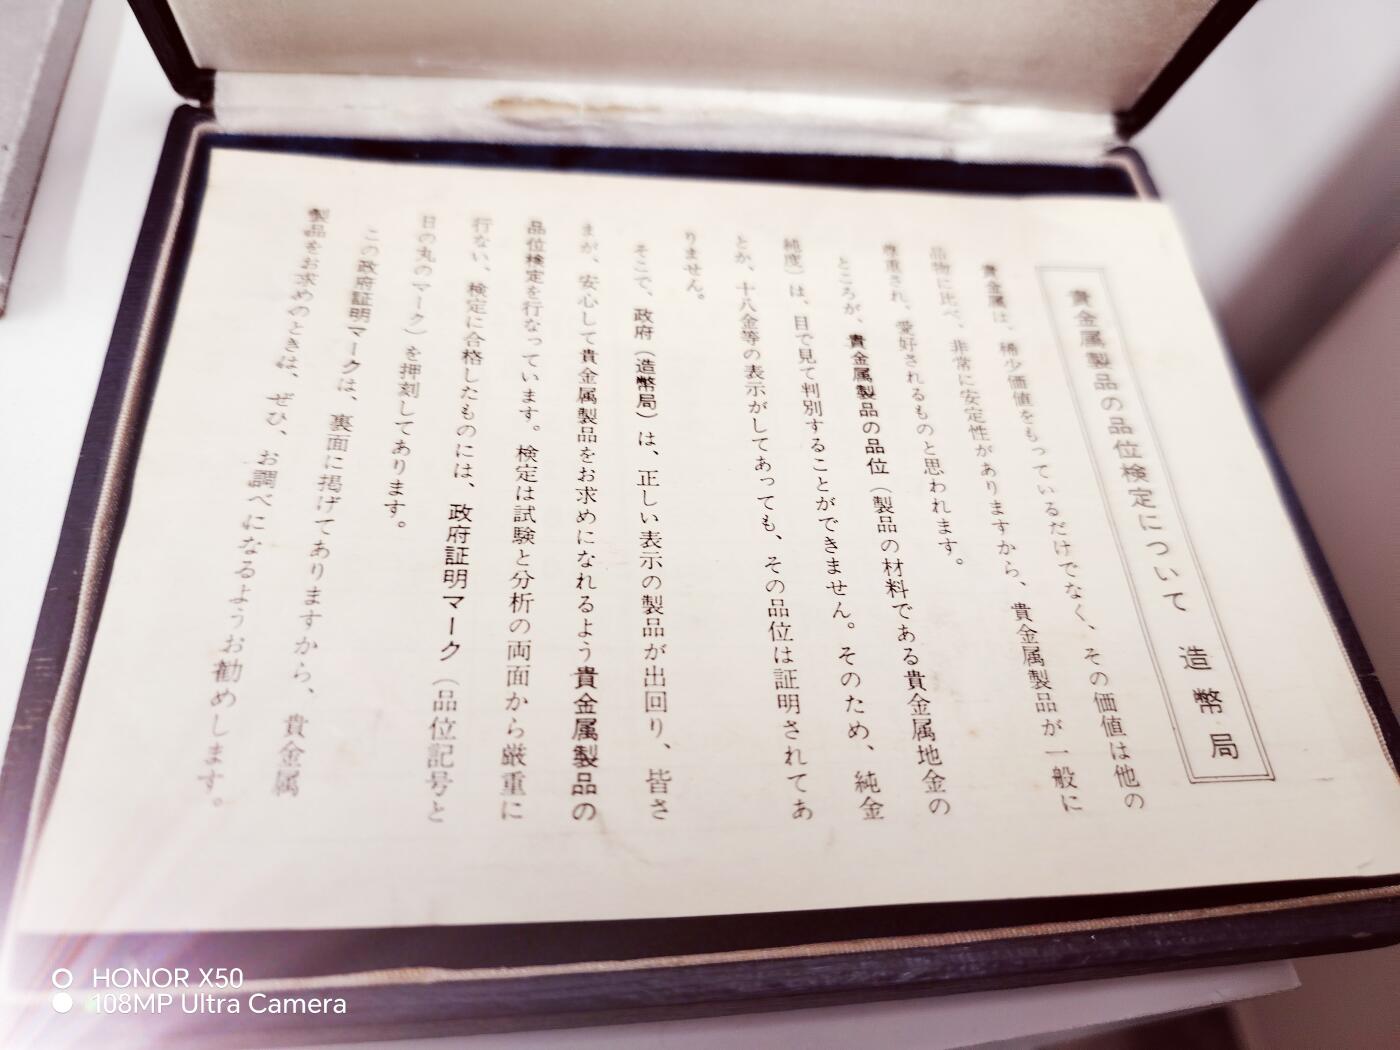 貴金属製品の品位検定について 造幣局
貴金属は、稀少価値をもっているだけでなく、その価値は他の
品物に比べ、非常に安定性がありますから、貴金属製品が一般に
尊重され、愛好されるものと思われます。
ところが、貴金属製品の品位（製品の材料である貴金属地金の
純度）は、目で見て判別することができません。そのため、純金
とか、十八金等の表示がしてあっても、その品位は証明されてあ
りません。
そこで、政府（造幣局）は、正しい表示の製品が出回り、皆さ
まが、安心して貴金属製品をお求めになれるよう貴金属製品の
品位検定を行なっています。検定は試験と分析の両面から厳重に
行ない、検定に合格したものには、政府証明マーク（品位記号と
日の丸のマーク）を押刻してあります。
この政府証明マークは、裏面に掲げてありますから、貴金属
製品をお求めのときは、ぜひ、お調べになるようお勧めします。
HONOR X50
108MP Ultra Camera